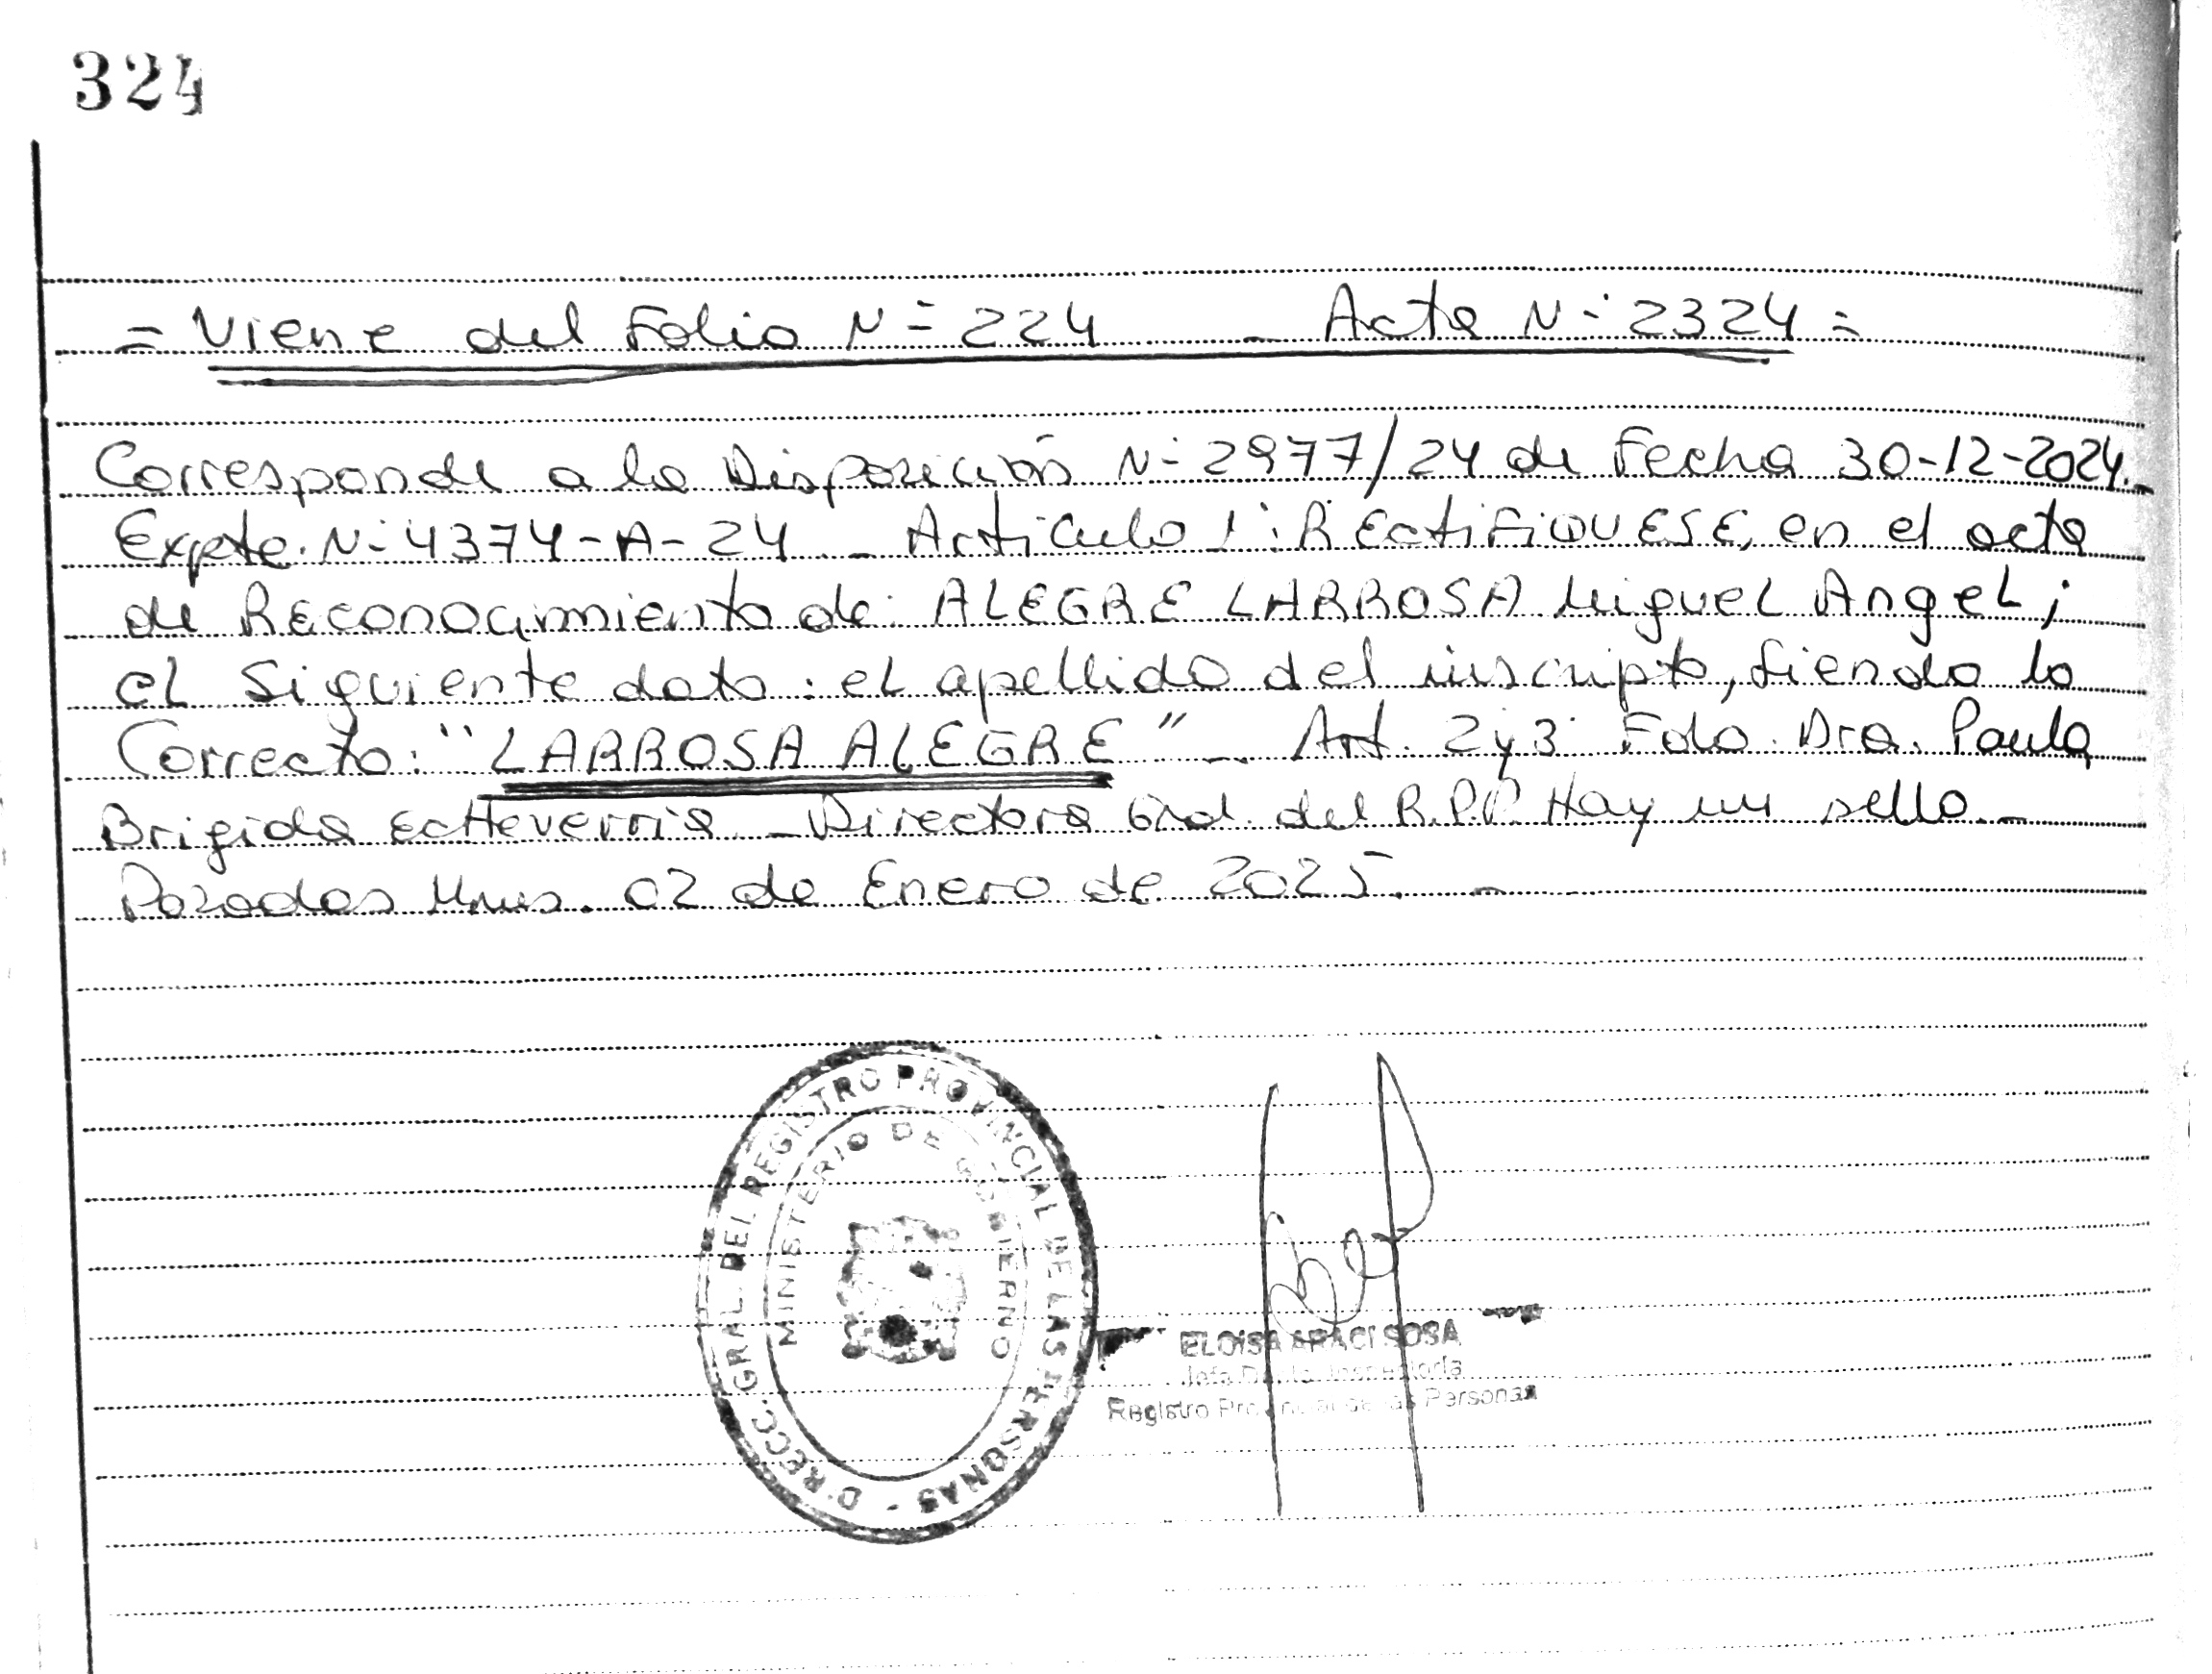 324
= Viene del Folio N= 224 - Acta N: 2324 =
Corresponde a la Disposición N: 2977/24 de Fecha 30-12-2024.-
Expte. N: 4374-A-24 - Articulo 1: RECtiFiQUESE, en el acta
de Reconocimiento de: ALEGRE LARROSA Miguel Angel;
el Siguiente dato: el apellido del inscripto, siendo lo
Correcto: "LARROSA ALEGRE" -. Art. 2 y 3 Fdo. Dra. Paula
Brigida Echeverria - Directora Gral. del R.P.P. Hay un sello.-
Posadas Mnes. 02 de Enero de 2025. -
D'RECC. GRAL. DEL REGISTRO PROVINCIAL DE LAS PERSONAS -
MINISTERIO DE GOBIERNO
ELOISA ARACI SOSA
Jefa Dpto. Inspectoría
Registro Provincial de las Personas